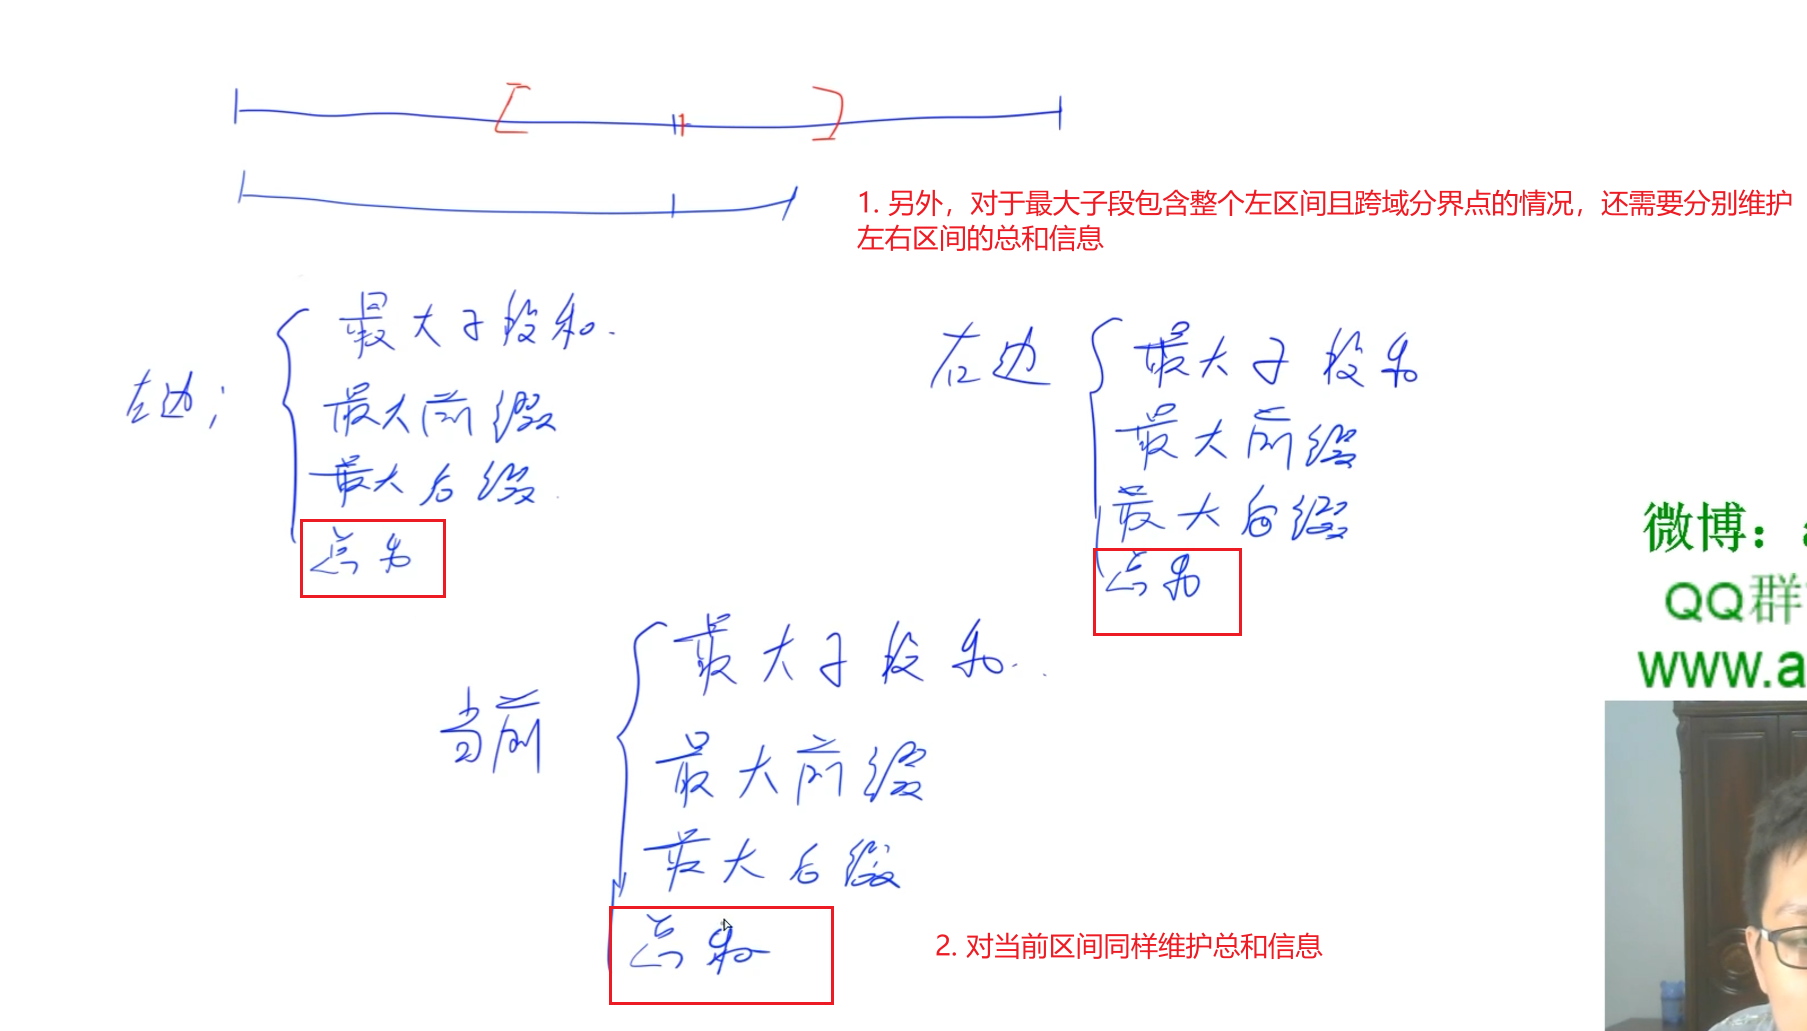 1. 另外，对于最大子段包含整个左区间且跨域分界点的情况，还需要分别维护
左右区间的总和信息
左边；
最大子段和.
最大前缀
最大后缀.
总和
右边
最大子段和
最大前缀
最大后缀
总和
微博：
QQ群
www.a
当前
最大子段和.
最大前缀
最大后缀
总和
2. 对当前区间同样维护总和信息